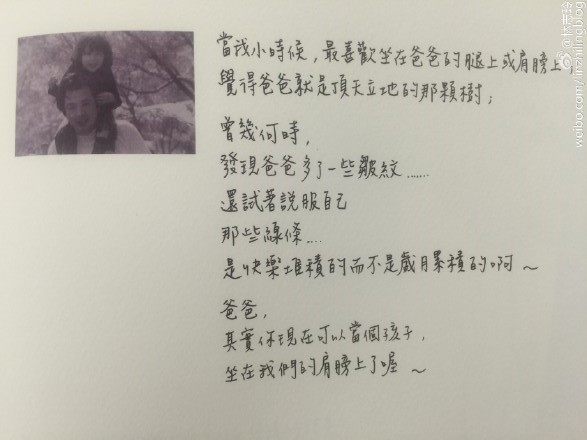 當我小時候，最喜歡坐在爸爸的腿上或肩膀上，
覺得爸爸就是頂天立地的那顆樹；
曾幾何時，
發現爸爸多了一些皺紋......
還試著說服自己
那些線條....
是快樂堆積的而不是歲月累積的啊～
爸爸，
其實你現在可以當個孩子，
坐在我們的肩膀上了喔～
weibo.com/linzhilingblog